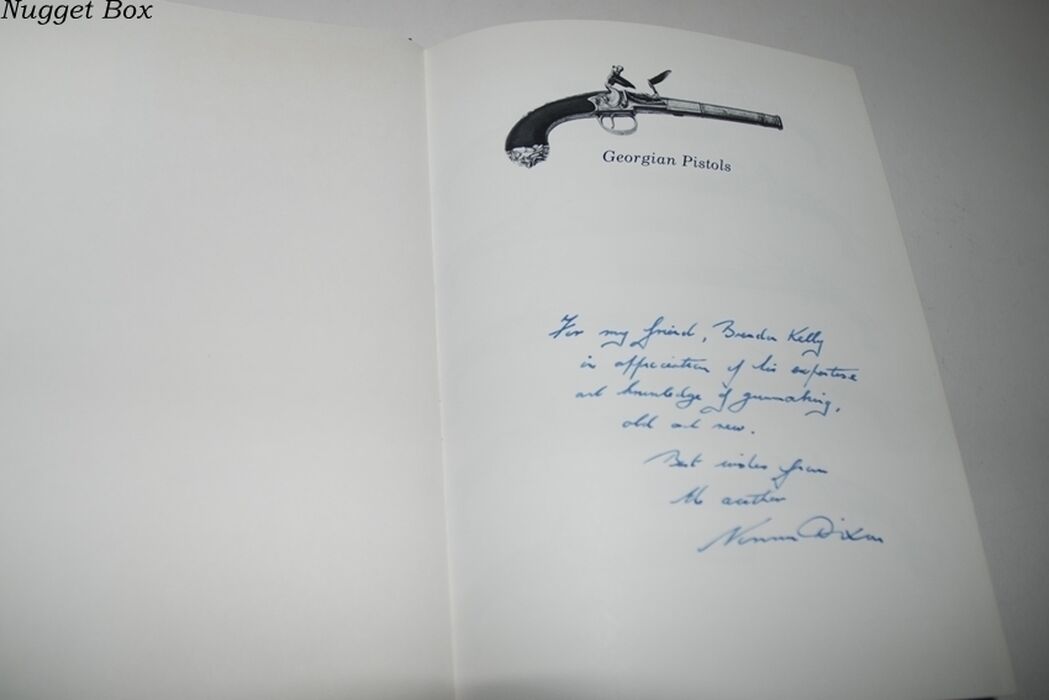 Nugget Box
Georgian Pistols
For my friend, Brendan Kelly
in appreciation of his expertise
and knowledge of gunmaking,
old and new.
Best wishes from
the author
Norman Dixon